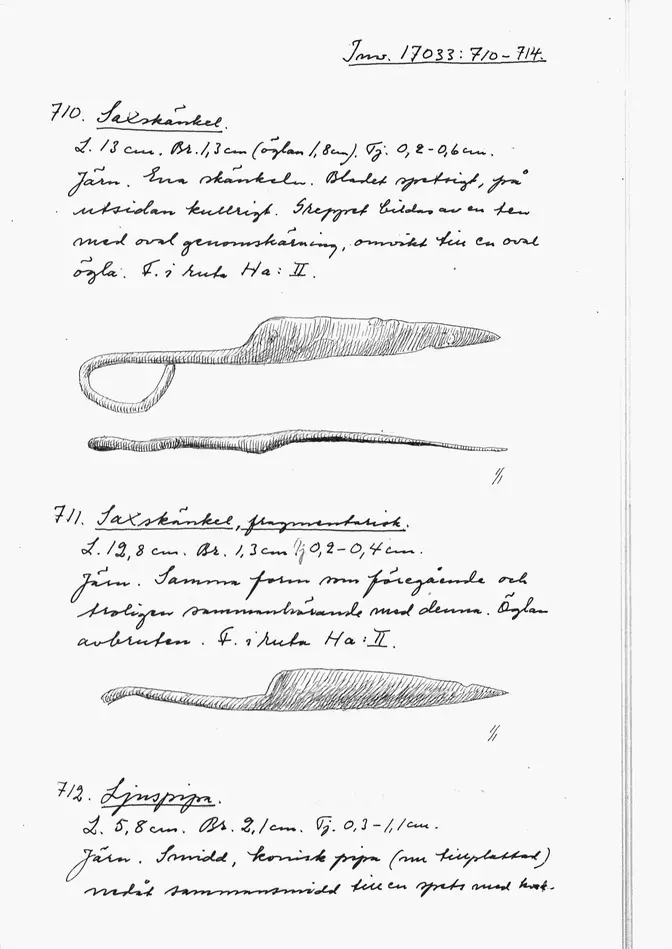 Inv. 17033:710-714.
710. Saxskänkel.
L. 13 cm. Br. 1,3 cm (öglan 1,8 cm). Tj. 0,2-0,6 cm.
Järn. Ena skänkeln. Bladet spetsigt, på
utsidan kullrigt. Greppet bildas av en ten
med oval genomskärning, omvikt till en oval
ögla. F. i ruta Ha: II.
1/1
711. Saxskänkel, fragmentarisk.
L. 12,8 cm. Br. 1,3 cm Tj 0,2-0,4 cm.
Järn. Samma form som föregående och
troligen sammanhörande med denna. Öglan
avbruten. F. i ruta Ha: II.
1/1
712. Ljuspipa.
L. 5,8 cm. Br. 2,1 cm. Tj. 0,3-1,1 cm.
Järn. Smidd, konisk pipa (nu tillplattad)
nedåt sammansmidd till en spets med